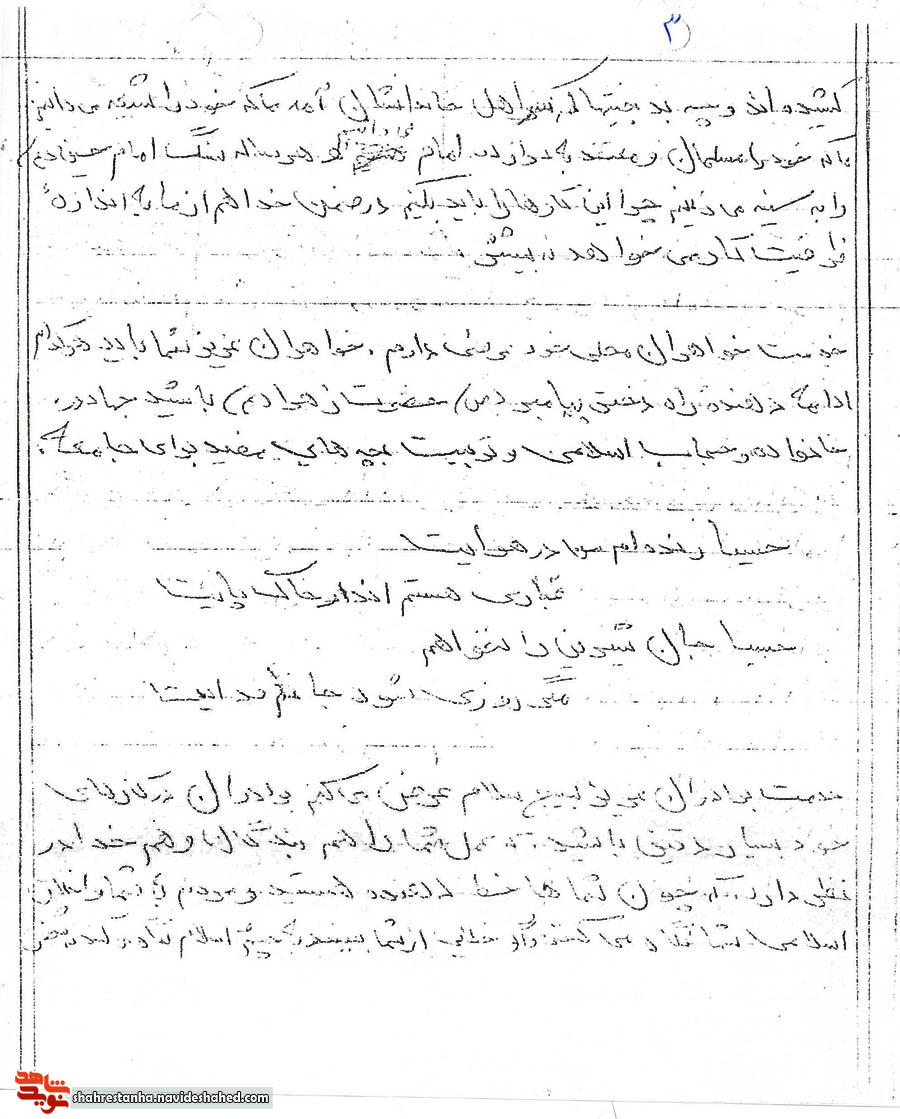 ۳
کشیده‌اند و چه بدبختیها که بر سر اهل خاندانشان آمد ما که خود را شیعه می دانیم
ما که خود را مسلمان و معتقد به دوازده امام می دانیم که هر ساله سنگ امام حسین (ع)
را به سینه می زنیم چرا این کارها را باید بکنیم در ضمن خدا هم از ما به اندازهٔ
ظرفیت کار می خواهد نه بیش .
خدمت خواهران محلی خود عرضی دارم . خواهران عزیز شما باید هر کدام
ادامه دهنده راه دختر پیامبر (ص) حضرت زهرا (س) باشید جهاد در
خانواده و حجاب اسلامی و تربیت بچه های مفید برای جامعه .
حسینا زنده ام من در هوایت
غباری هستم اندر خاک پایت
حسینا جان شیرین را نخواهم
مگر روزی شود جانم فدایت
خدمت برادران عزیز بسیج سلام عرض می کنم برادران در کارهای
خود بسیار دقیق باشید . که عمل شما را هم بندگان و هم خدا در
نظر دارد . که چون شما ها خط دهنده هستید و مردم به شما و اخلاق
اسلامی شما نگاه می کنند و اگر خطایی از شما ببینند به اسلام
shahrestanha.navideshahed.com
نوید شاهد